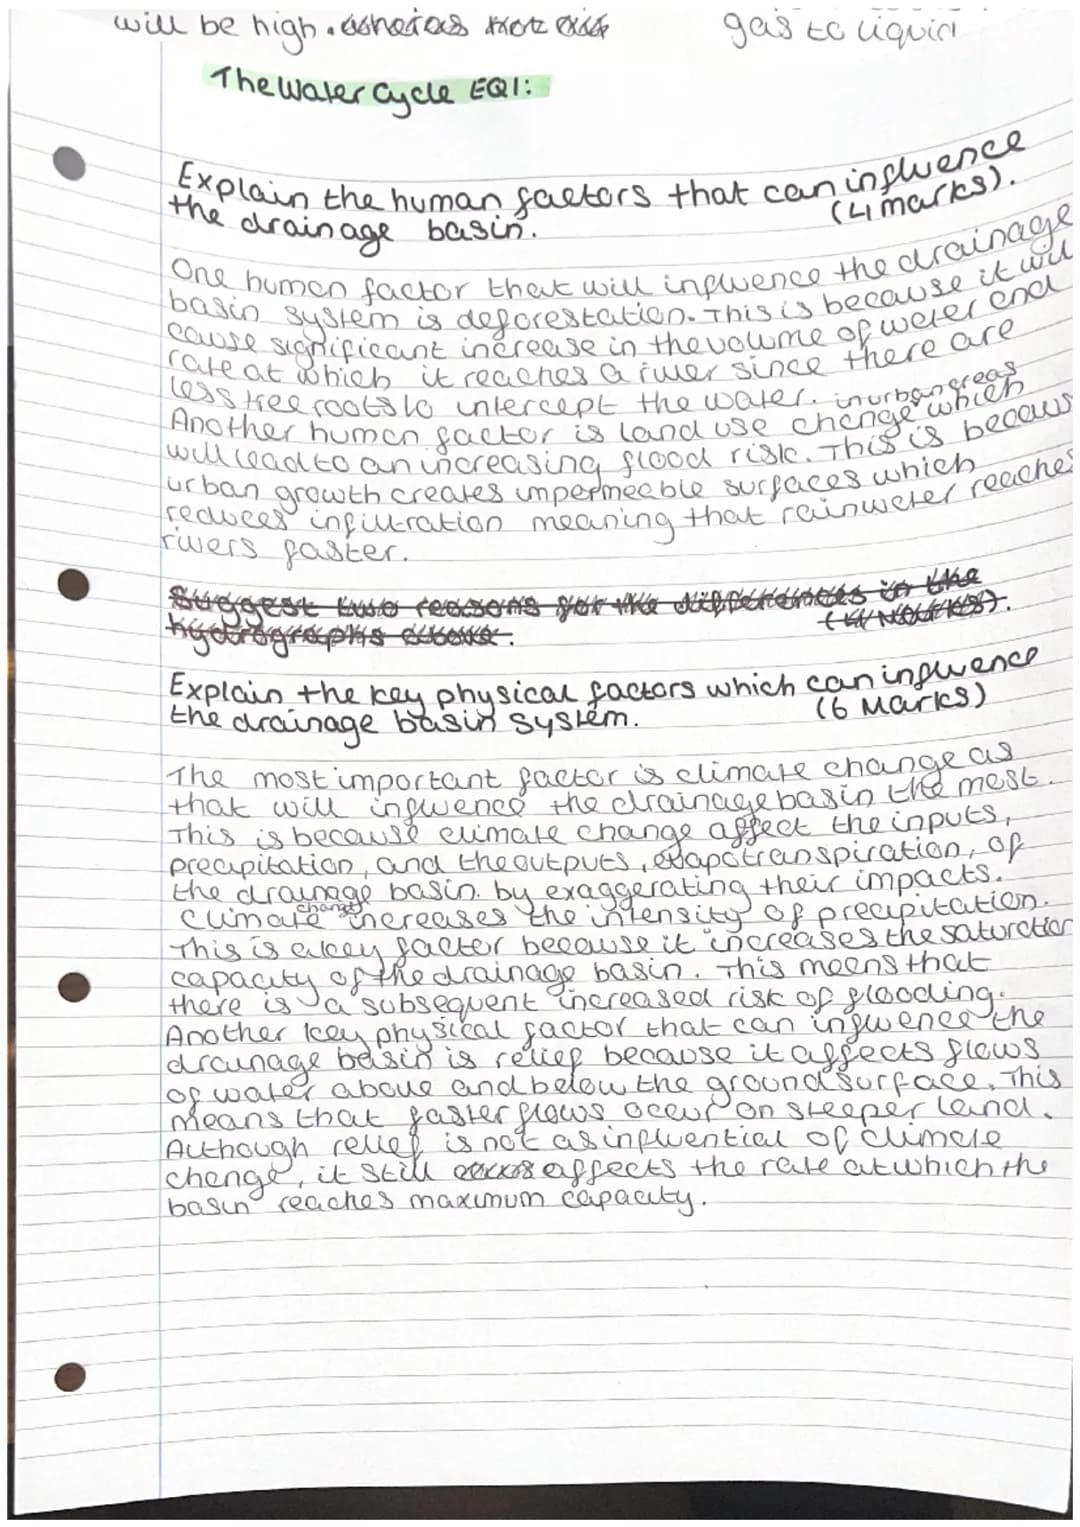 will be high. whereas hot air
gas to liquid
The Water Cycle EQ1:
Explain the human factors that can influence
the drainage basin. (4 marks).
One human factor that will influence the drainage
basin system is deforestation. This is because it will
cause significant increase in the volume of water and
rate at which it reaches a river since there are
less tree roots to intercept the water.
in urban areas
Another human factor is land use change which
will lead to an increasing flood risk. This is becaus
urban growth creates impermeable surfaces which
reduces infiltration meaning that rainwater reaches
rivers faster.
Suggest two reasons for the differences in the
hydrographs above. (4 Marks).
Explain the key physical factors which can influence
the drainage basin system. (6 Marks)
The most important factor is climate change as
that will influence the drainage basin the most.
This is because climate change affect the inputs,
precipitation, and the outputs, evapotranspiration, of
the drainage basin. by exaggerating their impacts.
Climate change increases the intensity of precipitation.
This is a key factor because it increases the saturation
capacity of the drainage basin. This means that
there is a subsequent increased risk of flooding.
Another key physical factor that can influence the
drainage basin is relief because it affects flows
of water above and below the ground surface. This
means that faster flows occur on steeper land.
Although relief is not as influential of climate
change, it still affects the rate at which the
basin reaches maximum capacity.